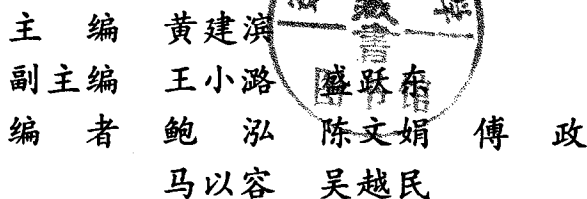 主 编 黄建滨
副主编 王小潞 盛跃东
编 者 鲍 泓 陈文娟 傅 政
马以容 吴越民
藏书